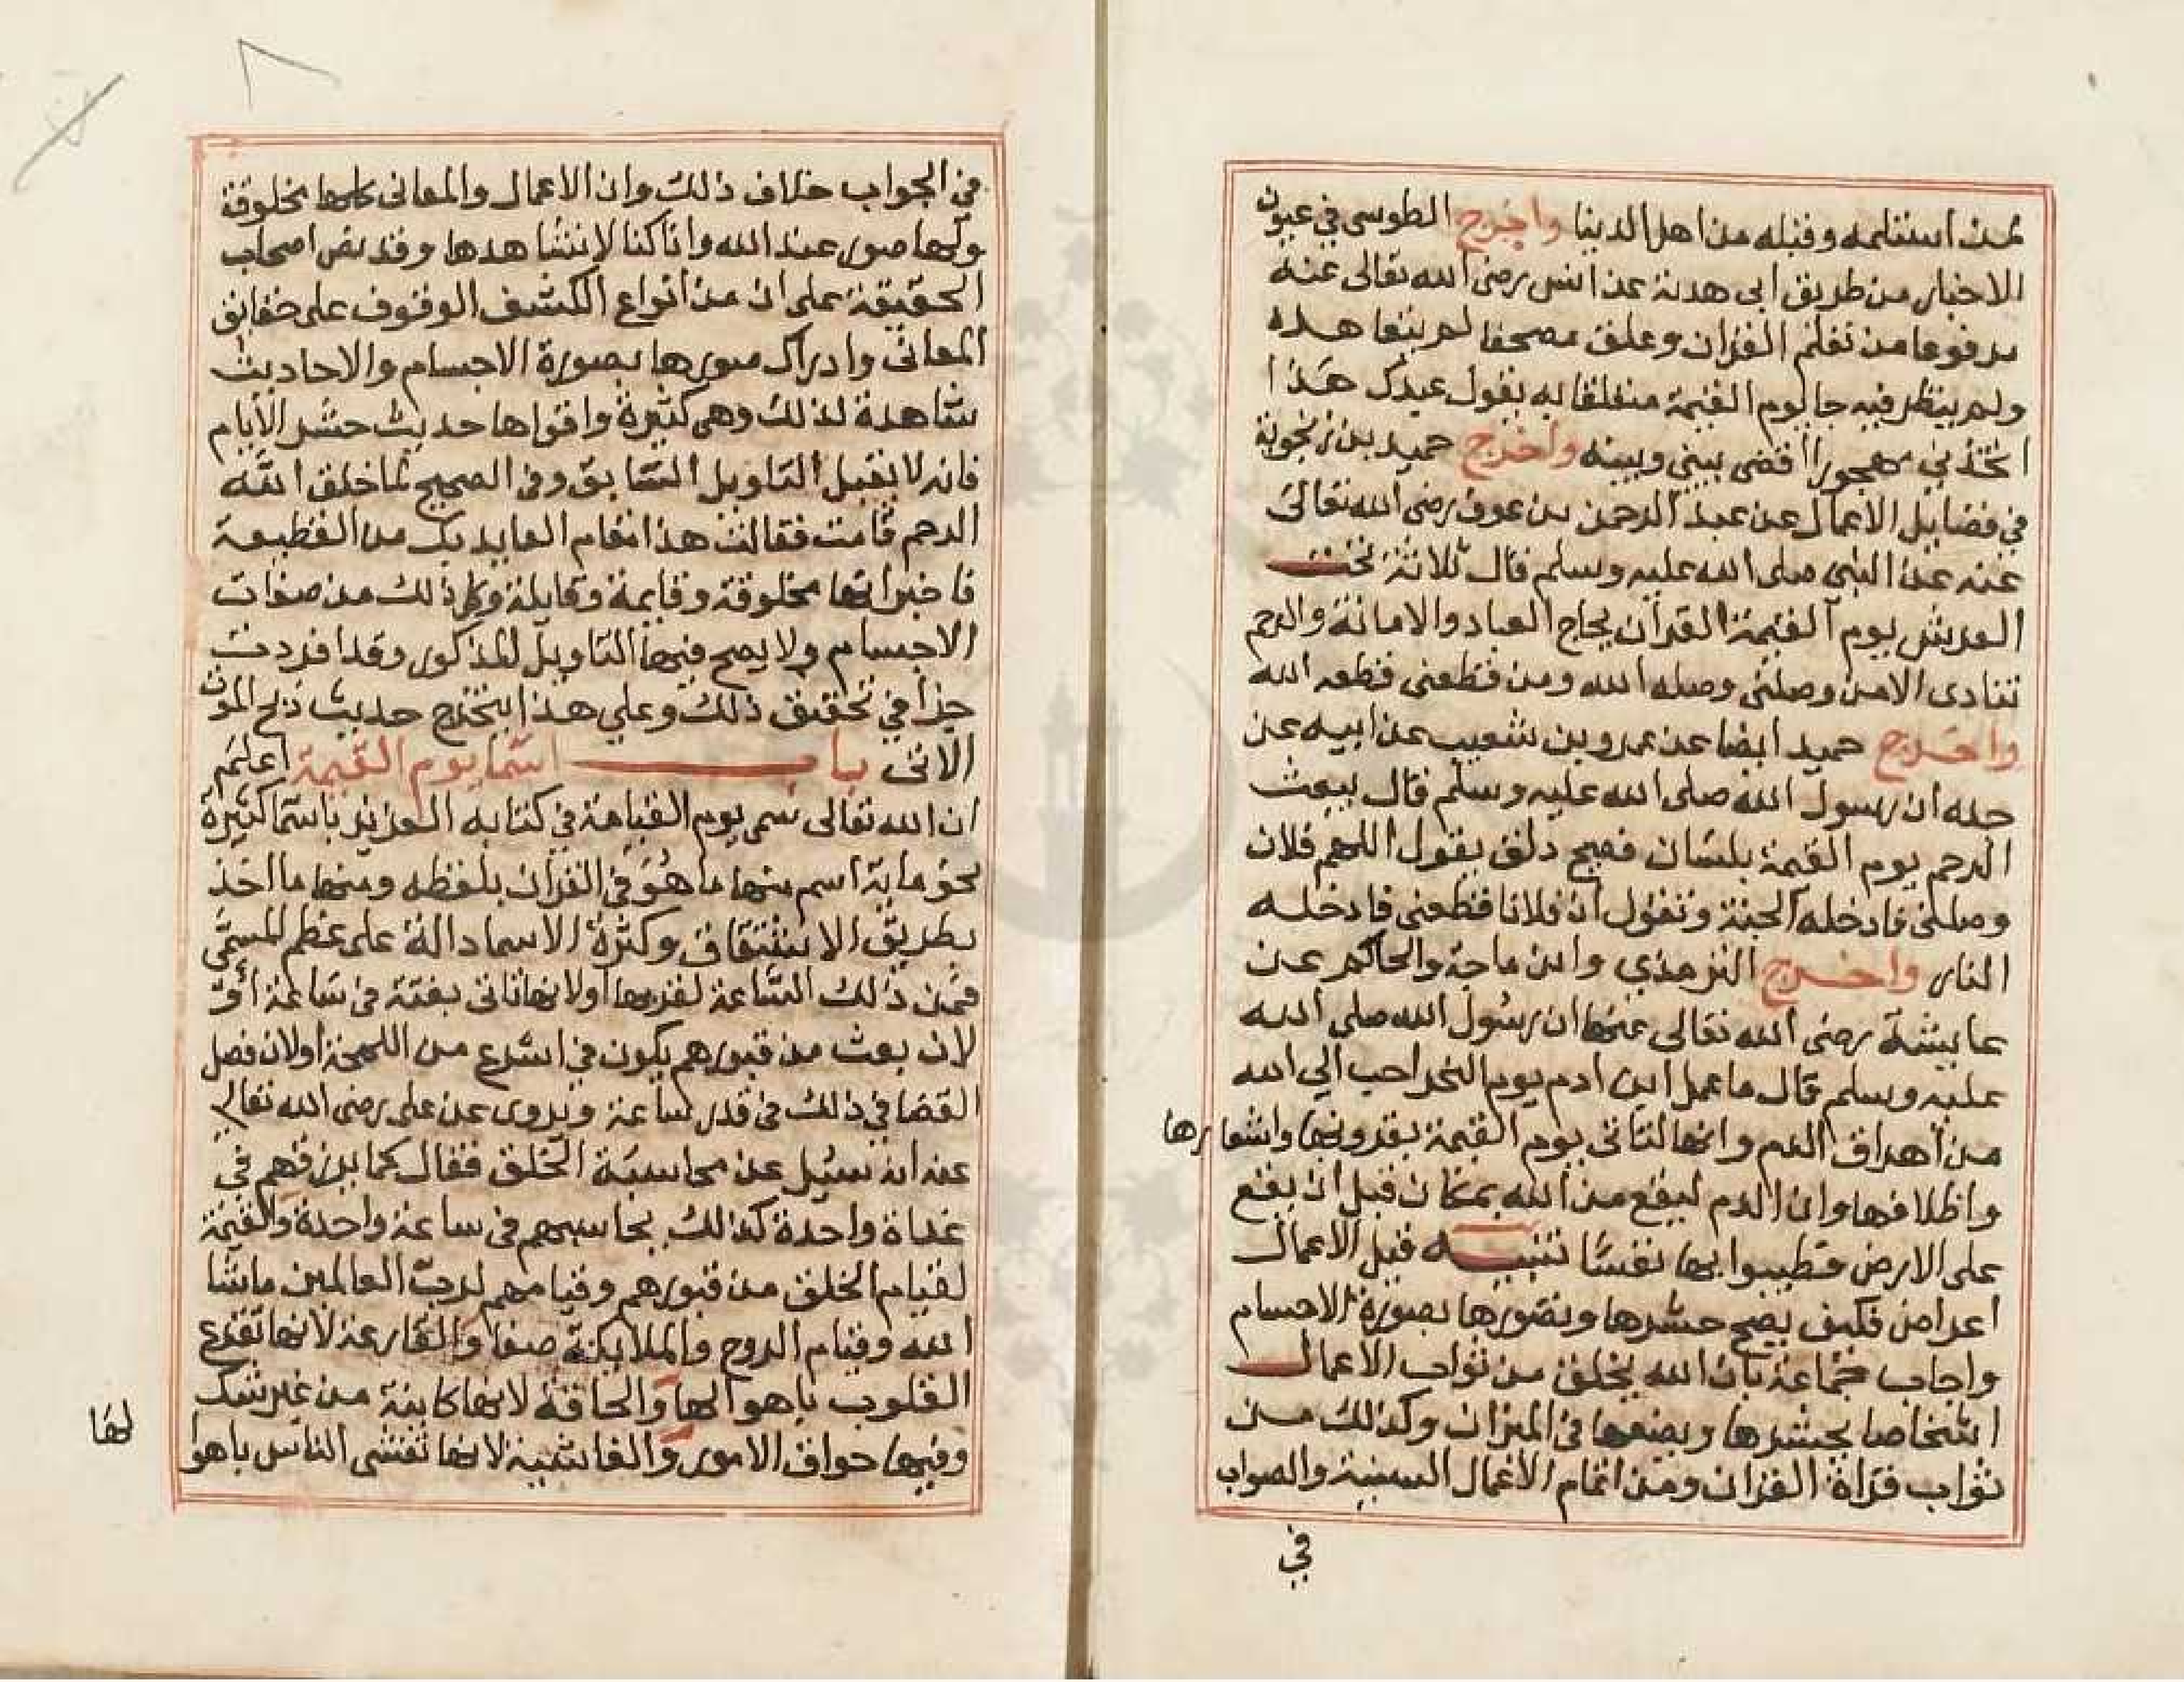 لمن استلمه وقبله من اهل الدنيا واخرج الطوسي في عيون
الاخبار من طريق ابي هدبة عن انس رضى الله تعالى عنه
مرفوعا من تعلم القران وعلق مصحفا لم يتعاهده
ولم ينظر فيه جا يوم القيمة متعلقا به يقول عبدك هذا
اتخذني مهجورا اقضى بيني وبينه واخرج حميد بن زنجوية
في فضايل الاعمال عن عبد الرحمن بن عوف رضى الله تعالى
عنه عن النبى صلى الله عليه وسلم قال ثلاثة تحت
العرش يوم القيمة القرآن يحاج العباد والامانة والرحم
تنادى الا من وصلنى وصله الله ومن قطعنى قطعه الله
واخرج حميد ايضا عن عمرو بن شعيب عن ابيه عن
جده ان رسول الله صلى الله عليه وسلم قال يبعث
الرحم يوم القيمة بلسان فصيح دلق يقول اللهم فلان
وصلنى فادخله الجنة وتقول ان فلانا قطعنى فادخله
النار واخرج الترمذي وابن ماجة والحاكم عن
عايشة رضى الله تعالى عنها ان رسول الله صلى الله
عليه وسلم قال ما عمل ابن ادم يوم النحر احب الي الله
من اهراق الدم وانها لتاتى يوم القيمة بقرونها واشعارها
واظلافها وان الدم ليقع من الله بمكان قبل ان يقع
على الارض فطيبوا بها نفسا تنبيه قيل الاعمال
اعراض فكيف يصح حشرها وتصورها بصورة الاجسام
واجاب جماعة بان الله يخلق من ثواب الاعمال
اشخاصا يحشرها ويضعها في الميزان وكذلك من
ثواب قراة القران ومن اتمام الاعمال السيئة والصواب
في
في الجواب خلاف ذلك وان الاعمال والمعانى كلها مخلوقة
ولها صور عند الله وانا كنا لا نشاهدها وقد نص اصحاب
الحقيقة على ان من أنواع الكشف الوقوف على حقائق
المعانى وادراك صورها بصورة الاجسام والاحاديث
شاهدة لذلك وهي كثيرة واقواها حديث حشر الأيام
فانه لا يقبل التاويل السابق وفي الصحيح لما خلق الله
الرحم قامت فقالت هذا مقام العايد بك من القطيعة
فاخبر انها مخلوقة وقايمة وقايلة وكل ذلك من صفات
الاجسام ولا يصح فيها التاويل المذكور وقد افردت
جزأ في تحقيق ذلك وعلي هذا يتخرج حديث ذبح الموت
الاتى باب اسما يوم القيمة اعلم
ان الله تعالى سمى يوم القيامة في كتابه العزيز باسما كثيرة
نحو ماية اسم منها ما هو في القران بلفظه ومنها ما اخذ
بطريق الاشتقاق وكثرة الاسما دالة على عظم المسمّى
فمن ذلك الساعة لقربها اولانها تاتى بغتة في ساعة أو
لان بعث من قبورهم يكون في اسرع من اللمحة اولان فصل
القضا في ذلك في قدر ساعة ويروى عن على رضى الله تعالى
عنه انه سئيل عن محاسبة الخلق فقال كما يرزقهم في
غداة واحدة كذلك يحاسبهم في ساعة واحدة والقيمة
لقيام الخلق من قبورهم وقيامهم لرب العالمين ماشا
الله وقيام الروح والملايكة صفا والقارعة لانها تقرع
القلوب باهوالها والحاقة لانها كاينة من غير شك
وفيها حواق الامور والغاشية لانها تغشى الناس باهوا
لها